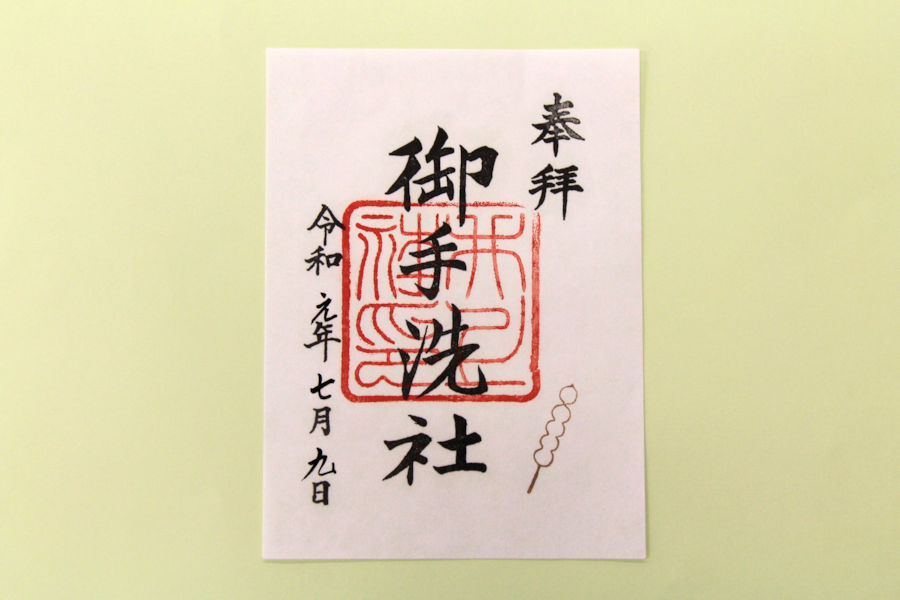 奉拝
御手洗社
令和元年七月九日